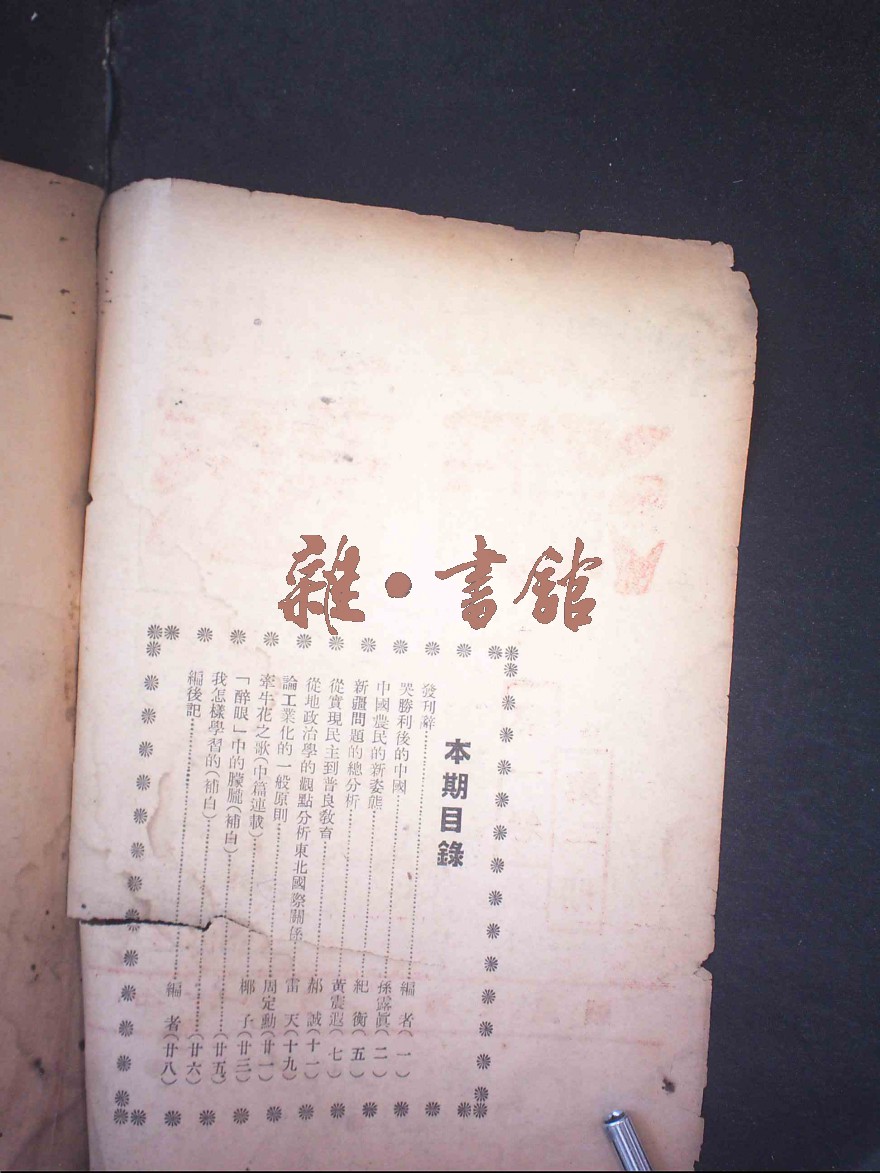 雜·書館
本期目錄
發刊辭……編者(一)
哭勝利後的中國……孫露真(二)
中國農民的新姿態……紀衡(五)
新疆問題的總分析……黃震遐(七)
從實現民主到普良教育……郝誠(十一)
從地政治學的觀點分析東北國際關係……雷天(十九)
論工業化的一般原則……周定勳(廿一)
牽牛花之歌(中篇連載)……椰子(廿三)
「醉眼」中的朦朧(補白)……(廿五)
我怎樣學習的(補白)……(廿六)
編後記……編者(廿八)